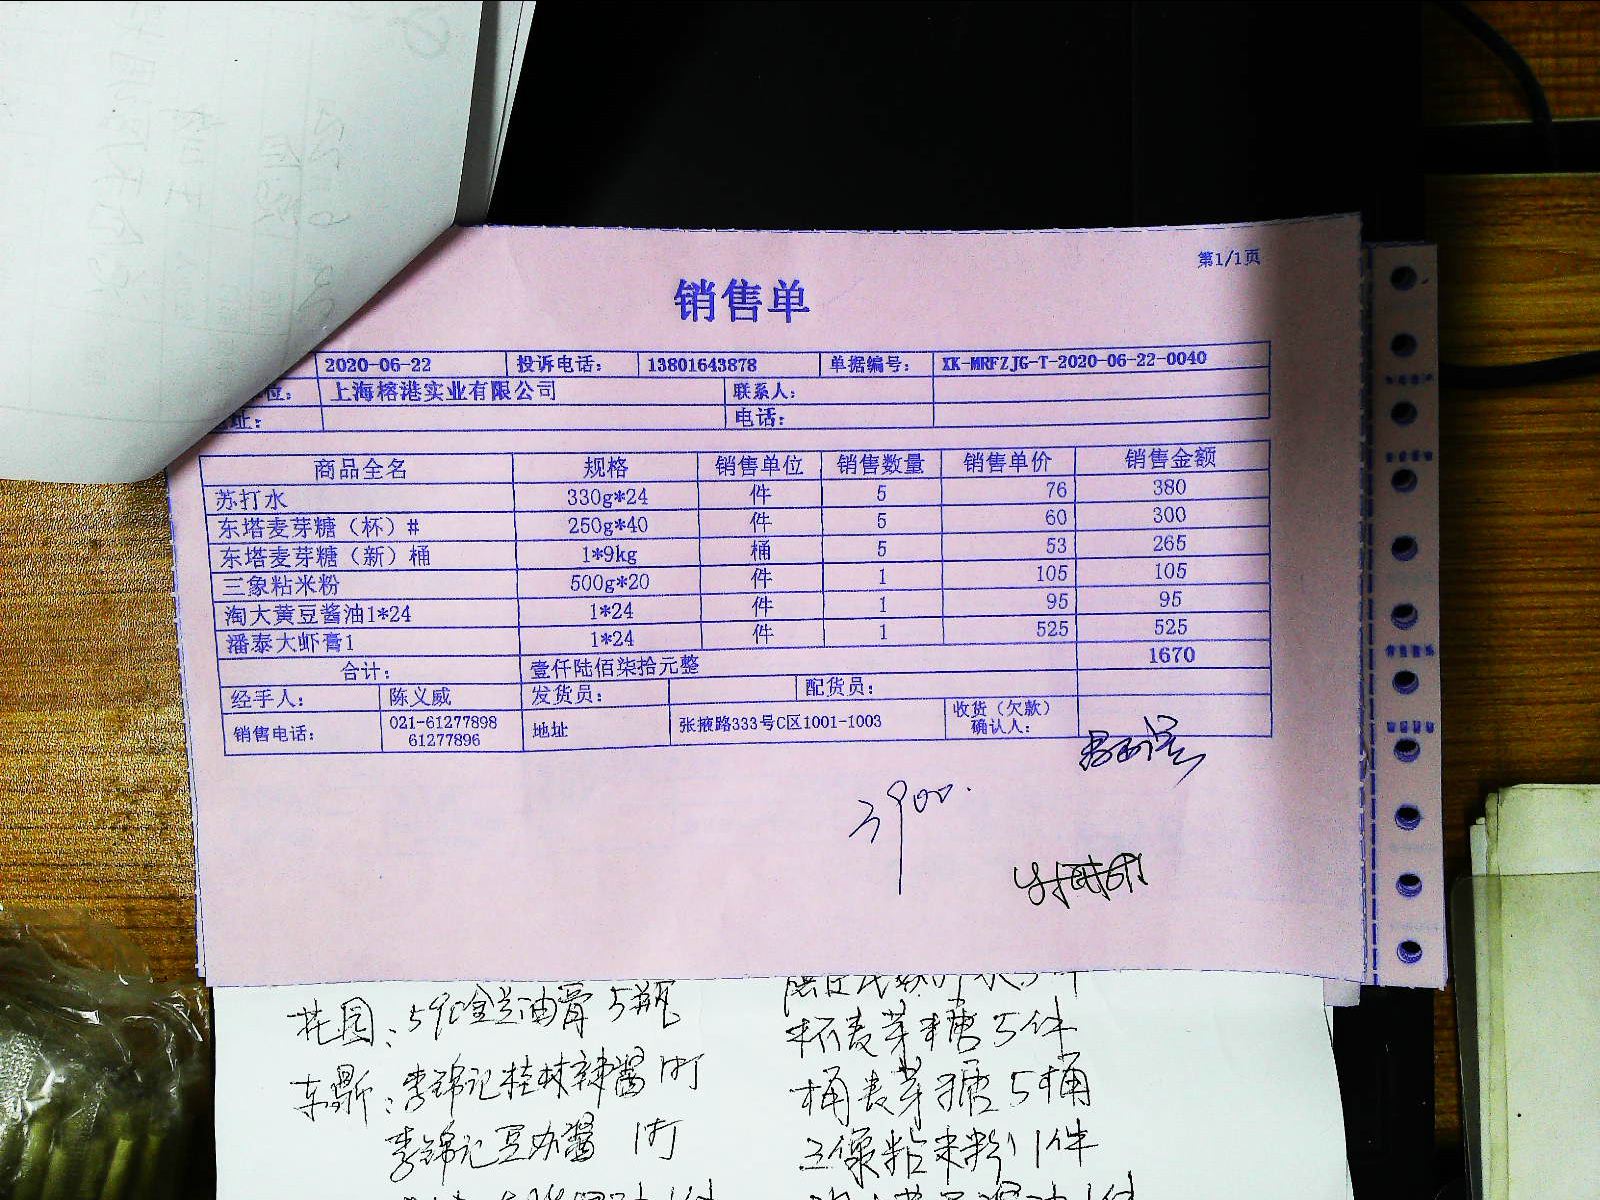 第1/1页
销售单
2020-06-22 投诉电话: 13801643878 单据编号: XK-MRFZJG-T-2020-06-22-0040
位: 上海榕港实业有限公司 联系人:
址: 电话:
商品全名 规格 销售单位 销售数量 销售单价 销售金额
苏打水 330g*24 件 5 76 380
东塔麦芽糖（杯）# 250g*40 件 5 60 300
东塔麦芽糖（新）桶 1*9kg 桶 5 53 265
三象粘米粉 500g*20 件 1 105 105
淘大黄豆酱油1*24 1*24 件 1 95 95
潘泰大虾膏1 1*24 件 1 525 525
合计: 壹仟陆佰柒拾元整 1670
经手人: 陈义威 发货员: 配货员:
销售电话: 021-61277898 地址 张掖路333号C区1001-1003 收货（欠款）
61277896 确认人:
3900.
花园: 油膏5瓶
杯麦芽糖5件
东鼎: 李锦记桂林辣酱1箱
桶麦芽糖5桶
李锦记豆瓣酱 1
三像粘米粉1件